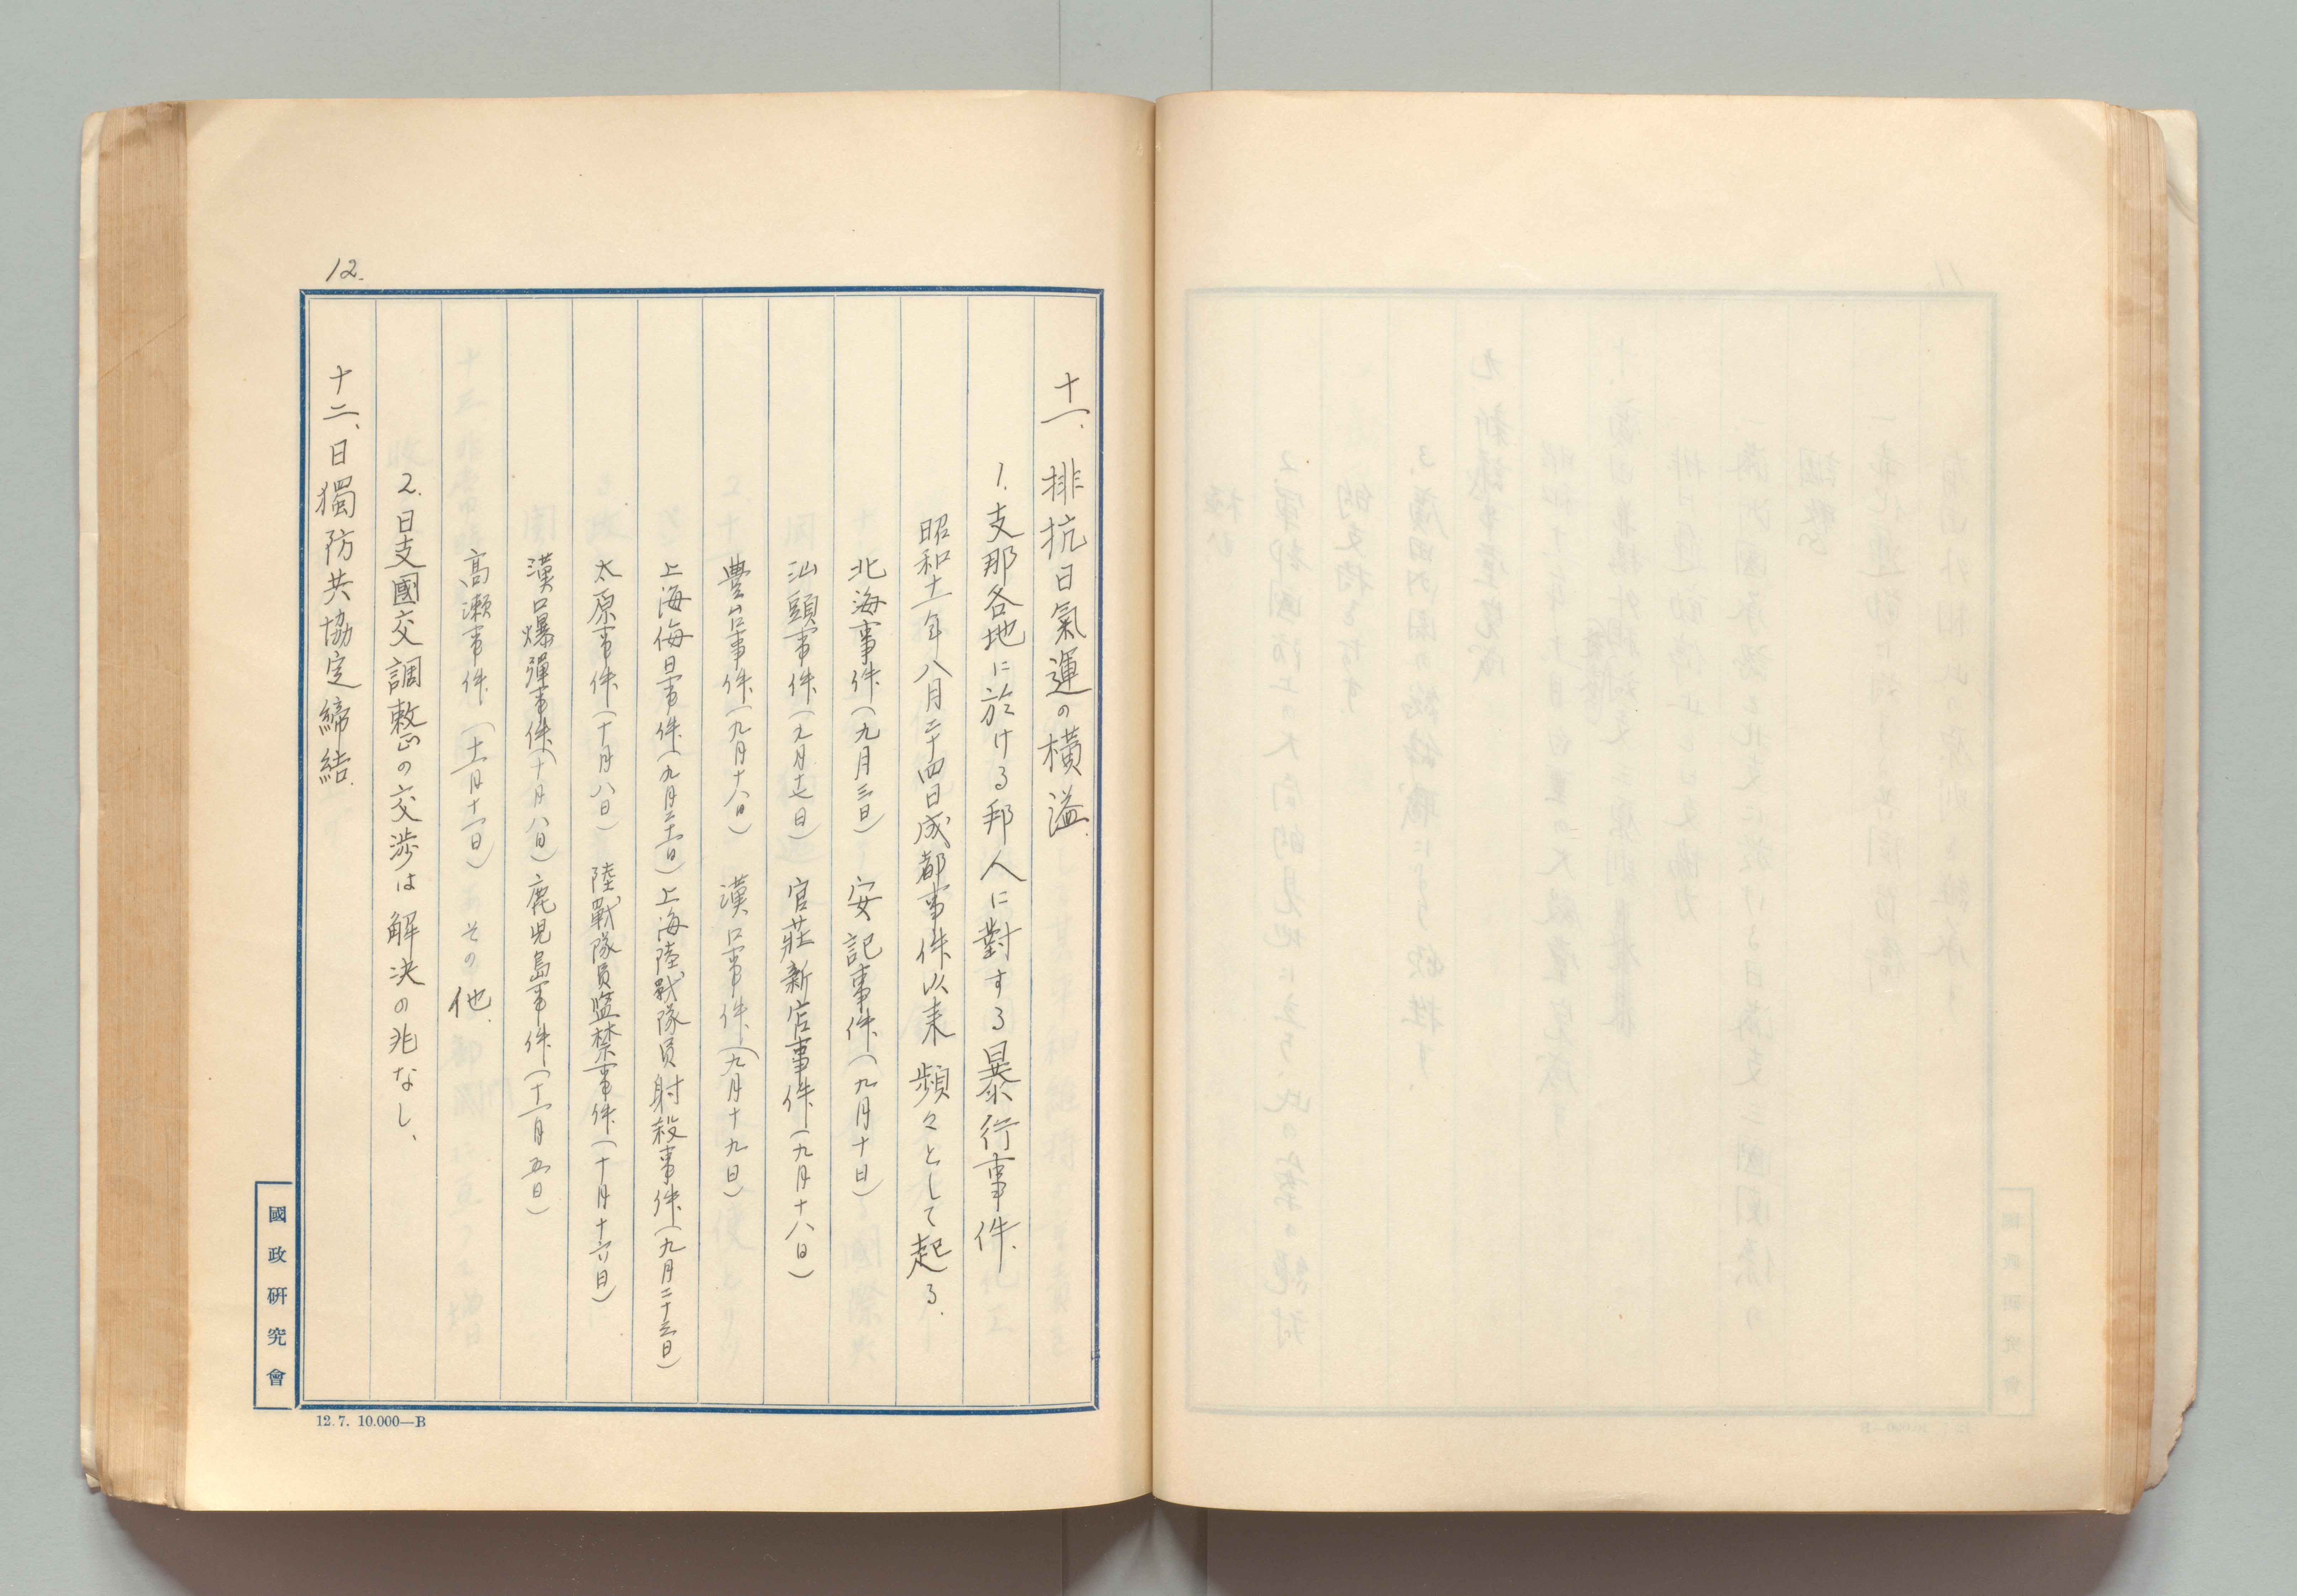 12.
十一、排抗日氣運の橫溢.
1.支那各地に於ける邦人に對する暴行事件.
昭和十一年八月二十四日成都事件以来頻々として起る.
北海事件(九月三日) 安記事件(九月十日)
汕頭事件(九月十七日) 官莊新店事件(九月十八日)
豊台事件(九月十八日) 漢口事件(九月十九日)
上海侮日事件(九月二十一日)上海陸戰隊員射殺事件(九月二十三日)
太原事件(十月八日) 陸戰隊員監禁事件(十月十六日)
漢口爆彈事件(十月八日)鹿児島事件(十一月五日)
高瀬事件(十一月十一日) その他.
2.日支國交調整の交渉は解決の兆なし、
十二、日獨防共協定締結.
國政研究會
12.7. 10.000—B